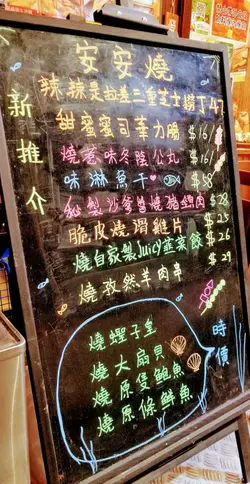 安安燒
新推介
辣辣是拉差三重芝士撈丁 47
甜蜜蜜司華力腸 $16
燒惹味冬陰公丸 $16
味淋魚干 $38
秘製沙爹串燒豬頸肉 $28
脆皮燒滑雞片 $25
燒自家製Juicy韮菜餃 $26
燒孜然羊肉串 $29
燒蟶子皇
燒大扇貝
燒原隻鮑魚
燒原條鮮魚
時價